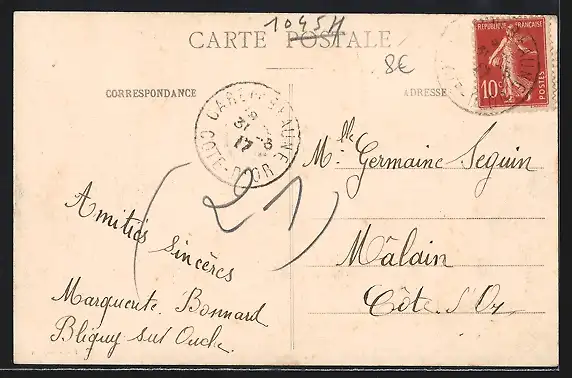 1045H
CARTE POSTALE
8€
CORRESPONDANCE
ADRESSE
REPUBLIQUE FRANÇAISE
10c
POSTES
31 -3
17
COTE-D'OR
(21)
Mlle Germaine Seguin
Mâlain
Côte d'Or
Amitiés Sincères
Marguerite Bonnard
Bligny sur Ouche.